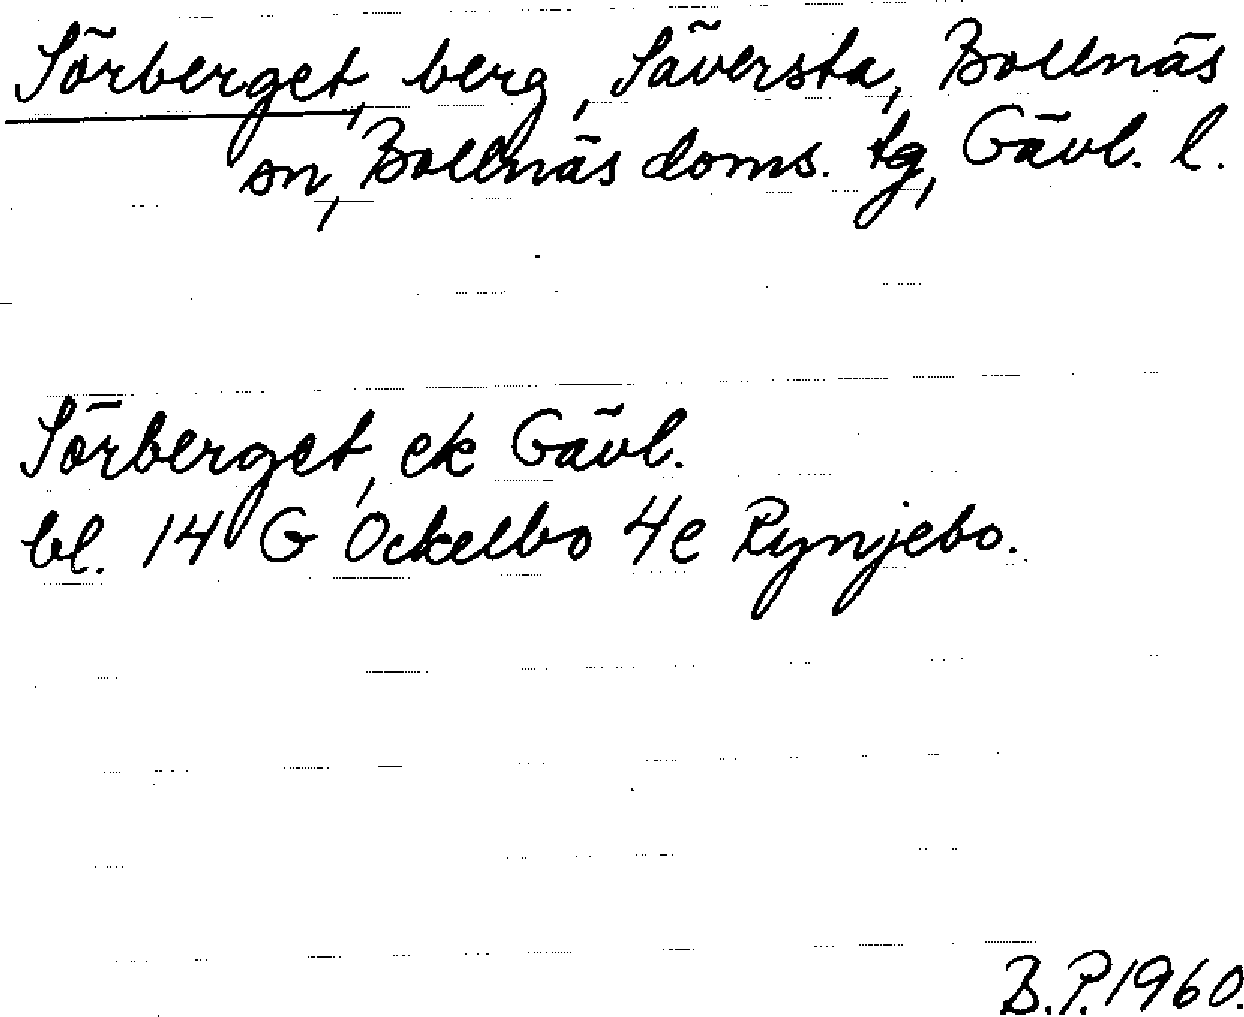 Sörberget, berg, Säversta, Bollnäs
sn, Bollnäs doms. tg, Gävl. l.
Sörberget, ek Gävl.
bl. 14 G Ockelbo 4e Rynjebo.
B.P. 1960.